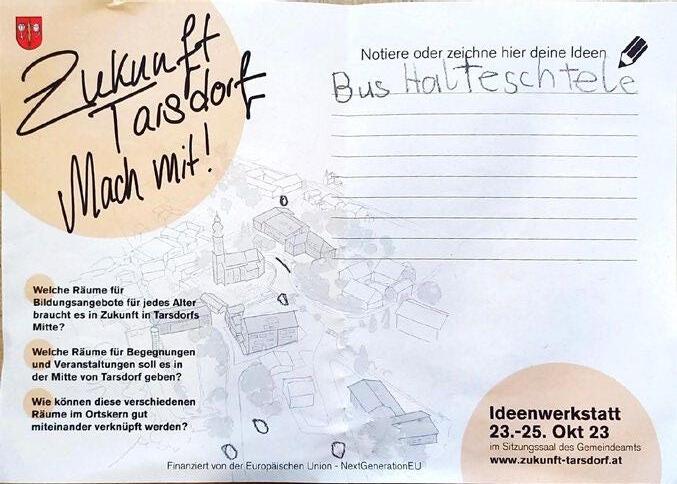 Zukunft
Tarsdorf
Mach mit!
Notiere oder zeichne hier deine Ideen
Bus Halteschtele
Welche Räume für
Bildungsangebote für jedes Alter
braucht es in Zukunft in Tarsdorfs
Mitte?
Welche Räume für Begegnungen
und Veranstaltungen soll es in
der Mitte von Tarsdorf geben?
Wie können diese verschiedenen
Räume im Ortskern gut
miteinander verknüpft werden?
Ideenwerkstatt
23.-25. Okt 23
im Sitzungssaal des Gemeindeamts
www.zukunft-tarsdorf.at
Finanziert von der Europäischen Union - NextGenerationEU